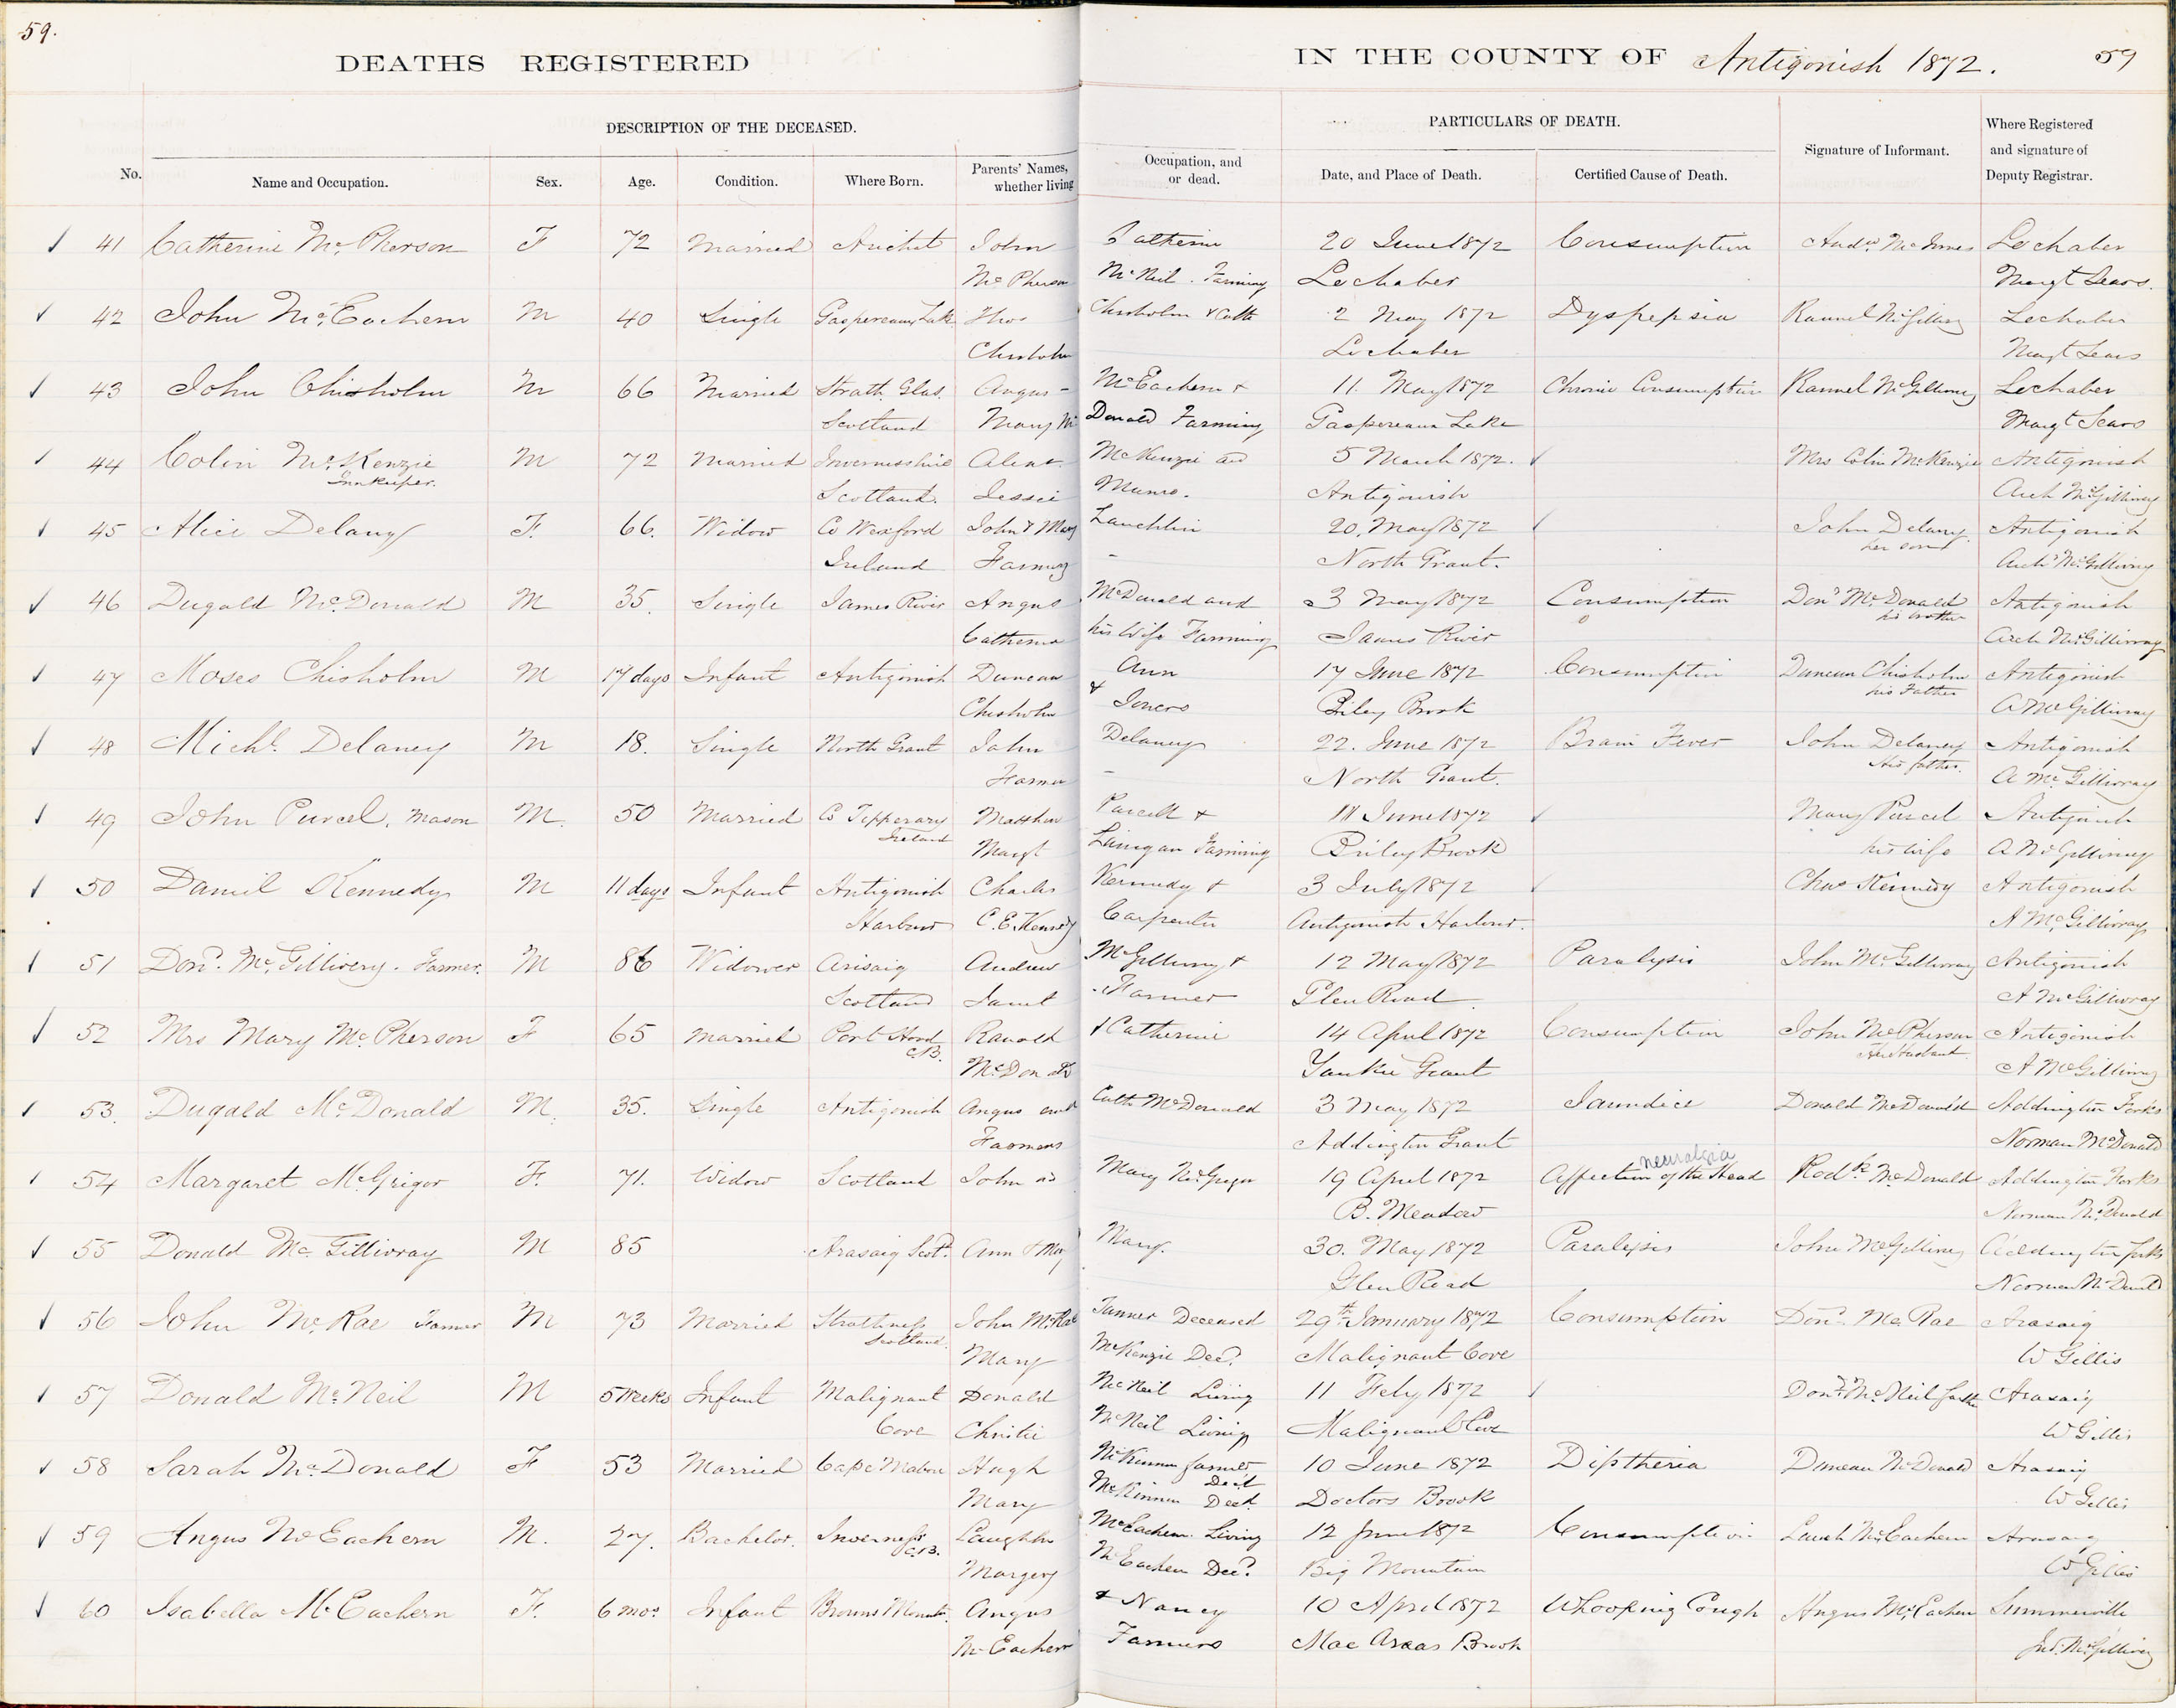 59.
DEATHS REGISTERED IN THE COUNTY OF Antigonish 1872. 59
DESCRIPTION OF THE DECEASED. PARTICULARS OF DEATH.
No. Name and Occupation. Sex. Age. Condition. Where Born. Parents' Names, whether living Occupation, and or dead. Date, and Place of Death. Certified Cause of Death. Signature of Informant. Where Registered and signature of Deputy Registrar.
41 Catherine McPherson F 72 Married Arichat John Catherine 20 June 1872 Consumption Andw. McInnes Lochaber
McPherson McNeil. Farming Lochaber Margt Sears.
42 John McEachern M 40 Single Gaspereaux Lake Thos Chisholm & Cath 2 May 1872 Dyspepsia Rannel McGillivry Lochaber
Chisholm Lochaber Margt Sears
43 John Chisholm M 66 Married Strath Glas. Angus McEachern & 11. May 1872 Chronic Consumption Rannel McGillivry Lochaber
Scotland Mary Mc Donald Farming Gaspereaux Lake Margt Sears
44 Colin McKenzie M 72 Married Invernesshire Alexr. McKenzie and 5 March 1872. Mrs Colin McKenzie Antigonish
Innkeeper. Scotland. Jessie Munro. Antigonish Arch McGillivry
45 Alice Delany F. 66. Widow Co Wexford John & Mary Lauchlin 20. May 1872 John Delany Antigonish
her son Ireland Farming North Grant. Archd McGillivry
46 Dugald McDonald M 35. Single James River Angus McDonald and 3 May 1872 Consumption Dond McDonald Antigonish
his brother Catherine his Wife Farming James River Arch McGillivray
47 Moses Chisholm M 17 days Infant Antigonish Duncan Ann 17 June 1872 Consumption Duncan Chisholm Antigonish
his Father Chisholm & Joners Briley Brook A McGillivray
48 Michl. Delaney M 18. Single North Grant John Delaney 22. June 1872 Brain Fever John Delaney Antigonish
his father. Farmer North Grant. A McGillivray
49 John Purcel, Mason M. 50 Married Co Tipperary Matthew Purcell & 18 June 1872 Mary Purcel Antigonish
Ireland Margt Lanigan Farming Briley Brook his wife A McGillivray
50 Daniel Kennedy M 11 days Infant Antigonish Charles Kennedy & 3 July 1872 Chas Kennedy Antigonish
Harbour C. E. Kennedy Carpenter Antigonish Harbour. A McGillivray
51 Dond. McGillivery. Farmer. M 86 Widower Arisaig Andrew McGillivry & 12 May 1872 Paralysis John McGillivray Antigonish
Scotland Janet Farmer Glen Road A McGillivray
52 Mrs Mary McPherson F 65 Married Port Hood Ranold & Catherine 14 April 1872 Consumption John McPherson Antigonish
C.B. McDonald Yankee Grant Her Husband A McGillivry
53. Dugald McDonald M. 35. Single Antigonish Angus and Cath McDonald 3 May 1872 Jaundice Donald McDonald Addington Forks
Farmers Addington Grant Norman McDonald
neuralgia
54 Margaret McGrigor F. 71. Widow Scotland John and Mary McGregor 19 April 1872 Affection of the Head Rodk McDonald Addington Forks
B. Meadow Norman McDonald
55 Donald McGillivray M 85 Arasaig Scotd. Ann & Mary Mary. 30. May 1872 Paralysis John McGillivry Addington forks
Glen Road Norman McDonald
56 John McRae Farmer M 73 Married Strathness John McRae Tanner Deceased 29th January 1872 Consumption Dond. McRae Arasaig
Scotland. Mary McKenzie Decd. Malignant Cove W Gillis
57 Donald McNeil M 5 Weeks Infant Malignant Donald McNeil Living 11 Feby 1872 Dond. McNeil father Arasaig
Cove Christie McNeil Living Malignant Cove W Gillis
58 Sarah McDonald F 53 Married Cape Mabou Hugh McKinnon farmer Decd 10 June 1872 Diptheria Duncan McDonald Arasaig
Mary McKinnon Decd. Doctors Brook W Gillis
59 Angus McEachern M. 27. Bachelor. Inverness Laughlin McEachern. Living 12 June 1872 Consumption Lauch McEachern Arasaig
C.B. Margery McEachern Decd. Big Mountain W Gillis
60 Isabella McEachern F. 6 mos. Infant Browns Mount. Angus & Nancy 10 April 1872 Whooping Cough Angus McEachern Summerville
McEachern Farmers Mac Aras Brook Jno. McGillivry